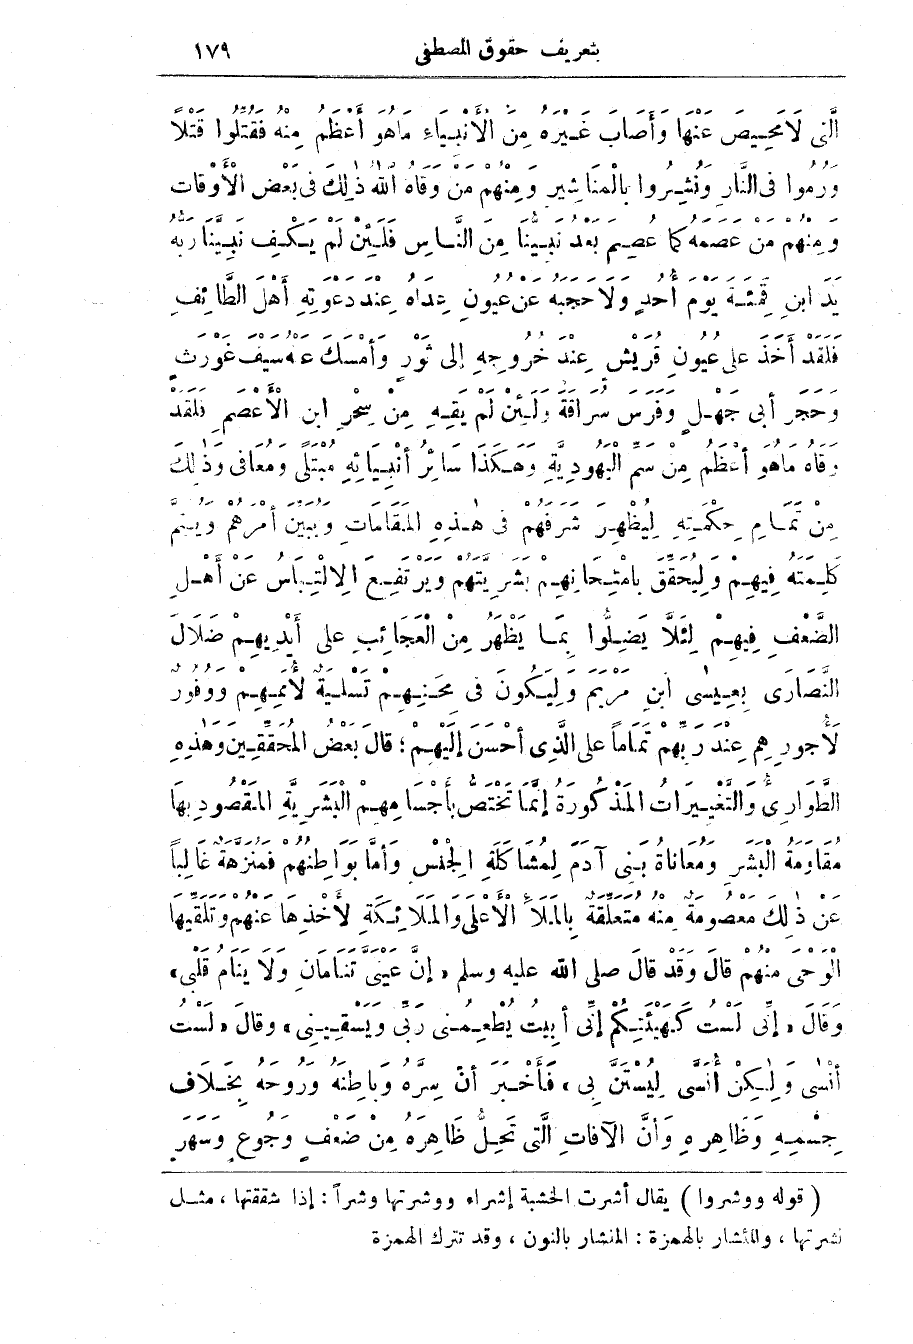 بتعريف حقوق المصطفى ١٧٩
الَّتِى لَا مَحِيصَ عَنْهَا وَأَصَابَ غَيْرَهُ مِنَ الْأَنْبِيَاءِ مَا هُوَ أَعْظَمُ مِنْهُ فَقُتِلُوا قَتْلاً
وَرُمُوا فِى النَّارِ وَنُشِرُوا بِالْمَنَاشِيرِ وَمِنْهُمْ مَنْ وَقَاهُ اللهُ ذٰلِكَ فِى بَعْضِ الْأَوْقَاتِ
وَمِنْهُمْ مَنْ عَصَمَهُ كَمَا عُصِمَ بَعْدُ نَبِيُّنَا مِنَ النَّاسِ فَلَئِنْ لَمْ يَكْفِ نَبِيَّنَا رَبُّهُ
يَدَ ابنِ قَمِئَةَ يَوْمَ أُحُدٍ وَلَا حَجَبَهُ عَنْ عُيُونِ عِدَاهُ عِنْدَ دَعْوَتِهِ أَهْلَ الطَّائِفِ
فَلَقَدْ أَخَذَ عَلَى عُيُونِ قُرَيْشٍ عِنْدَ خُرُوجِهِ إلى ثَوْرٍ وَأَمْسَكَ عَنْهُ سَيْفَ غَوْرَثٍ
وَحَجَرَ أبى جَهْلٍ وَفَرَسَ سُرَاقَةَ وَلَئِنْ لَمْ يَقِهِ مِنْ سِحْرِ ابنِ الْأَعْصَمِ فَلَقَدْ
وَقَاهُ مَا هُوَ أَعْظَمُ مِنْ سَمِّ الْيَهُودِيَّةِ وَهَكَذَا سَائِرُ أَنْبِيَائِهِ مُبْتَلًى وَمُعَافًى وَذٰلِكَ
مِنْ تَمَامِ حِكْمَتِهِ لِيُظْهِرَ شَرَفَهُمْ فى هٰذِهِ الْمَقَامَاتِ وَيُبَيِّنَ أَمْرَهُمْ وَيُتِمَّ
كَلِمَتَهُ فِيهِمْ وَلِيُحَقِّقَ بِامْتِحَانِهِمْ بَشَرِيَّتَهُمْ وَيَرْتَفِعَ الِالْتِبَاسُ عَنْ أَهْلِ
الضَّعْفِ فِيهِمْ لِئَلَّا يَضِلُّوا بِمَا يَظْهَرُ مِنَ الْعَجَائِبِ عَلَى أَيْدِيهِمْ ضَلَالَ
النَّصَارَى بِعِيسٰى ابنِ مَرْيَمَ وَلِيَكُونَ فى مِحَنِهِمْ تَسْلِيَةٌ لِأُمَمِهِمْ وَوُفُورٌ
لِأُجُورِهِمْ عِنْدَ رَبِّهِمْ تَمَاماً عَلَى الَّذِى أَحْسَنَ إِلَيْهِمْ ؛ قَالَ بَعْضُ الْمُحَقِّقِينَ وَهٰذِهِ
الطَّوَارِئُ وَالتَّغْيِيرَاتُ الْمَذْكُورَةُ إِنَّمَا تَخْتَصُّ بِأَجْسَامِهِمُ الْبَشَرِيَّةِ الْمَقْصُودِ بِهَا
مُقَاوَمَةُ الْبَشَرِ وَمُعَانَاةُ بَنِى آدَمَ لِمُشَاكَلَةِ الْجِنْسِ وَأَمَّا بَوَاطِنُهُمْ فَمُنَزَّهَةٌ غَالِباً
عَنْ ذٰلِكَ مَعْصُومَةٌ مِنْهُ مُتَعَلِّقَةٌ بِالْمَلَأِ الْأَعْلَى وَالْمَلَائِكَةِ لِأَخْذِهَا عَنْهُمْ وَتَلَقِّيهَا
الْوَحْىَ مِنْهُمْ قَالَ وَقَدْ قَالَ صلى الله عليه وسلم « إِنَّ عَيْنَىَّ تَنَامَانِ وَلَا يَنَامُ قَلْبِى »
وَقَالَ « إِنِّى لَسْتُ كَهَيْئَتِكُمْ إِنِّى أَبِيتُ يُطْعِمُنِى رَبِّى وَيَسْقِينِى » وَقَالَ « لَسْتُ
أَنْسٰى وَلٰكِنْ أُنَسَّى لِيُسْتَنَّ بِى » فَأَخْبَرَ أَنَّ سِرَّهُ وَبَاطِنَهُ وَرُوحَهُ بِخِلَافِ
جِسْمِهِ وَظَاهِرِهِ وَأَنَّ الْآفَاتِ الَّتِى تَحِلُّ ظَاهِرَهُ مِنْ ضَعْفٍ وَجُوعٍ وَسَهَرٍ
( قوله ووشروا ) يقال أشرت الخشبة إشراء ووشرتها وشراً : إذا شققتها ، مثل
نشرتها ، والمئشار بالهمزة : المنشار بالنون ، وقد تترك الهمزة